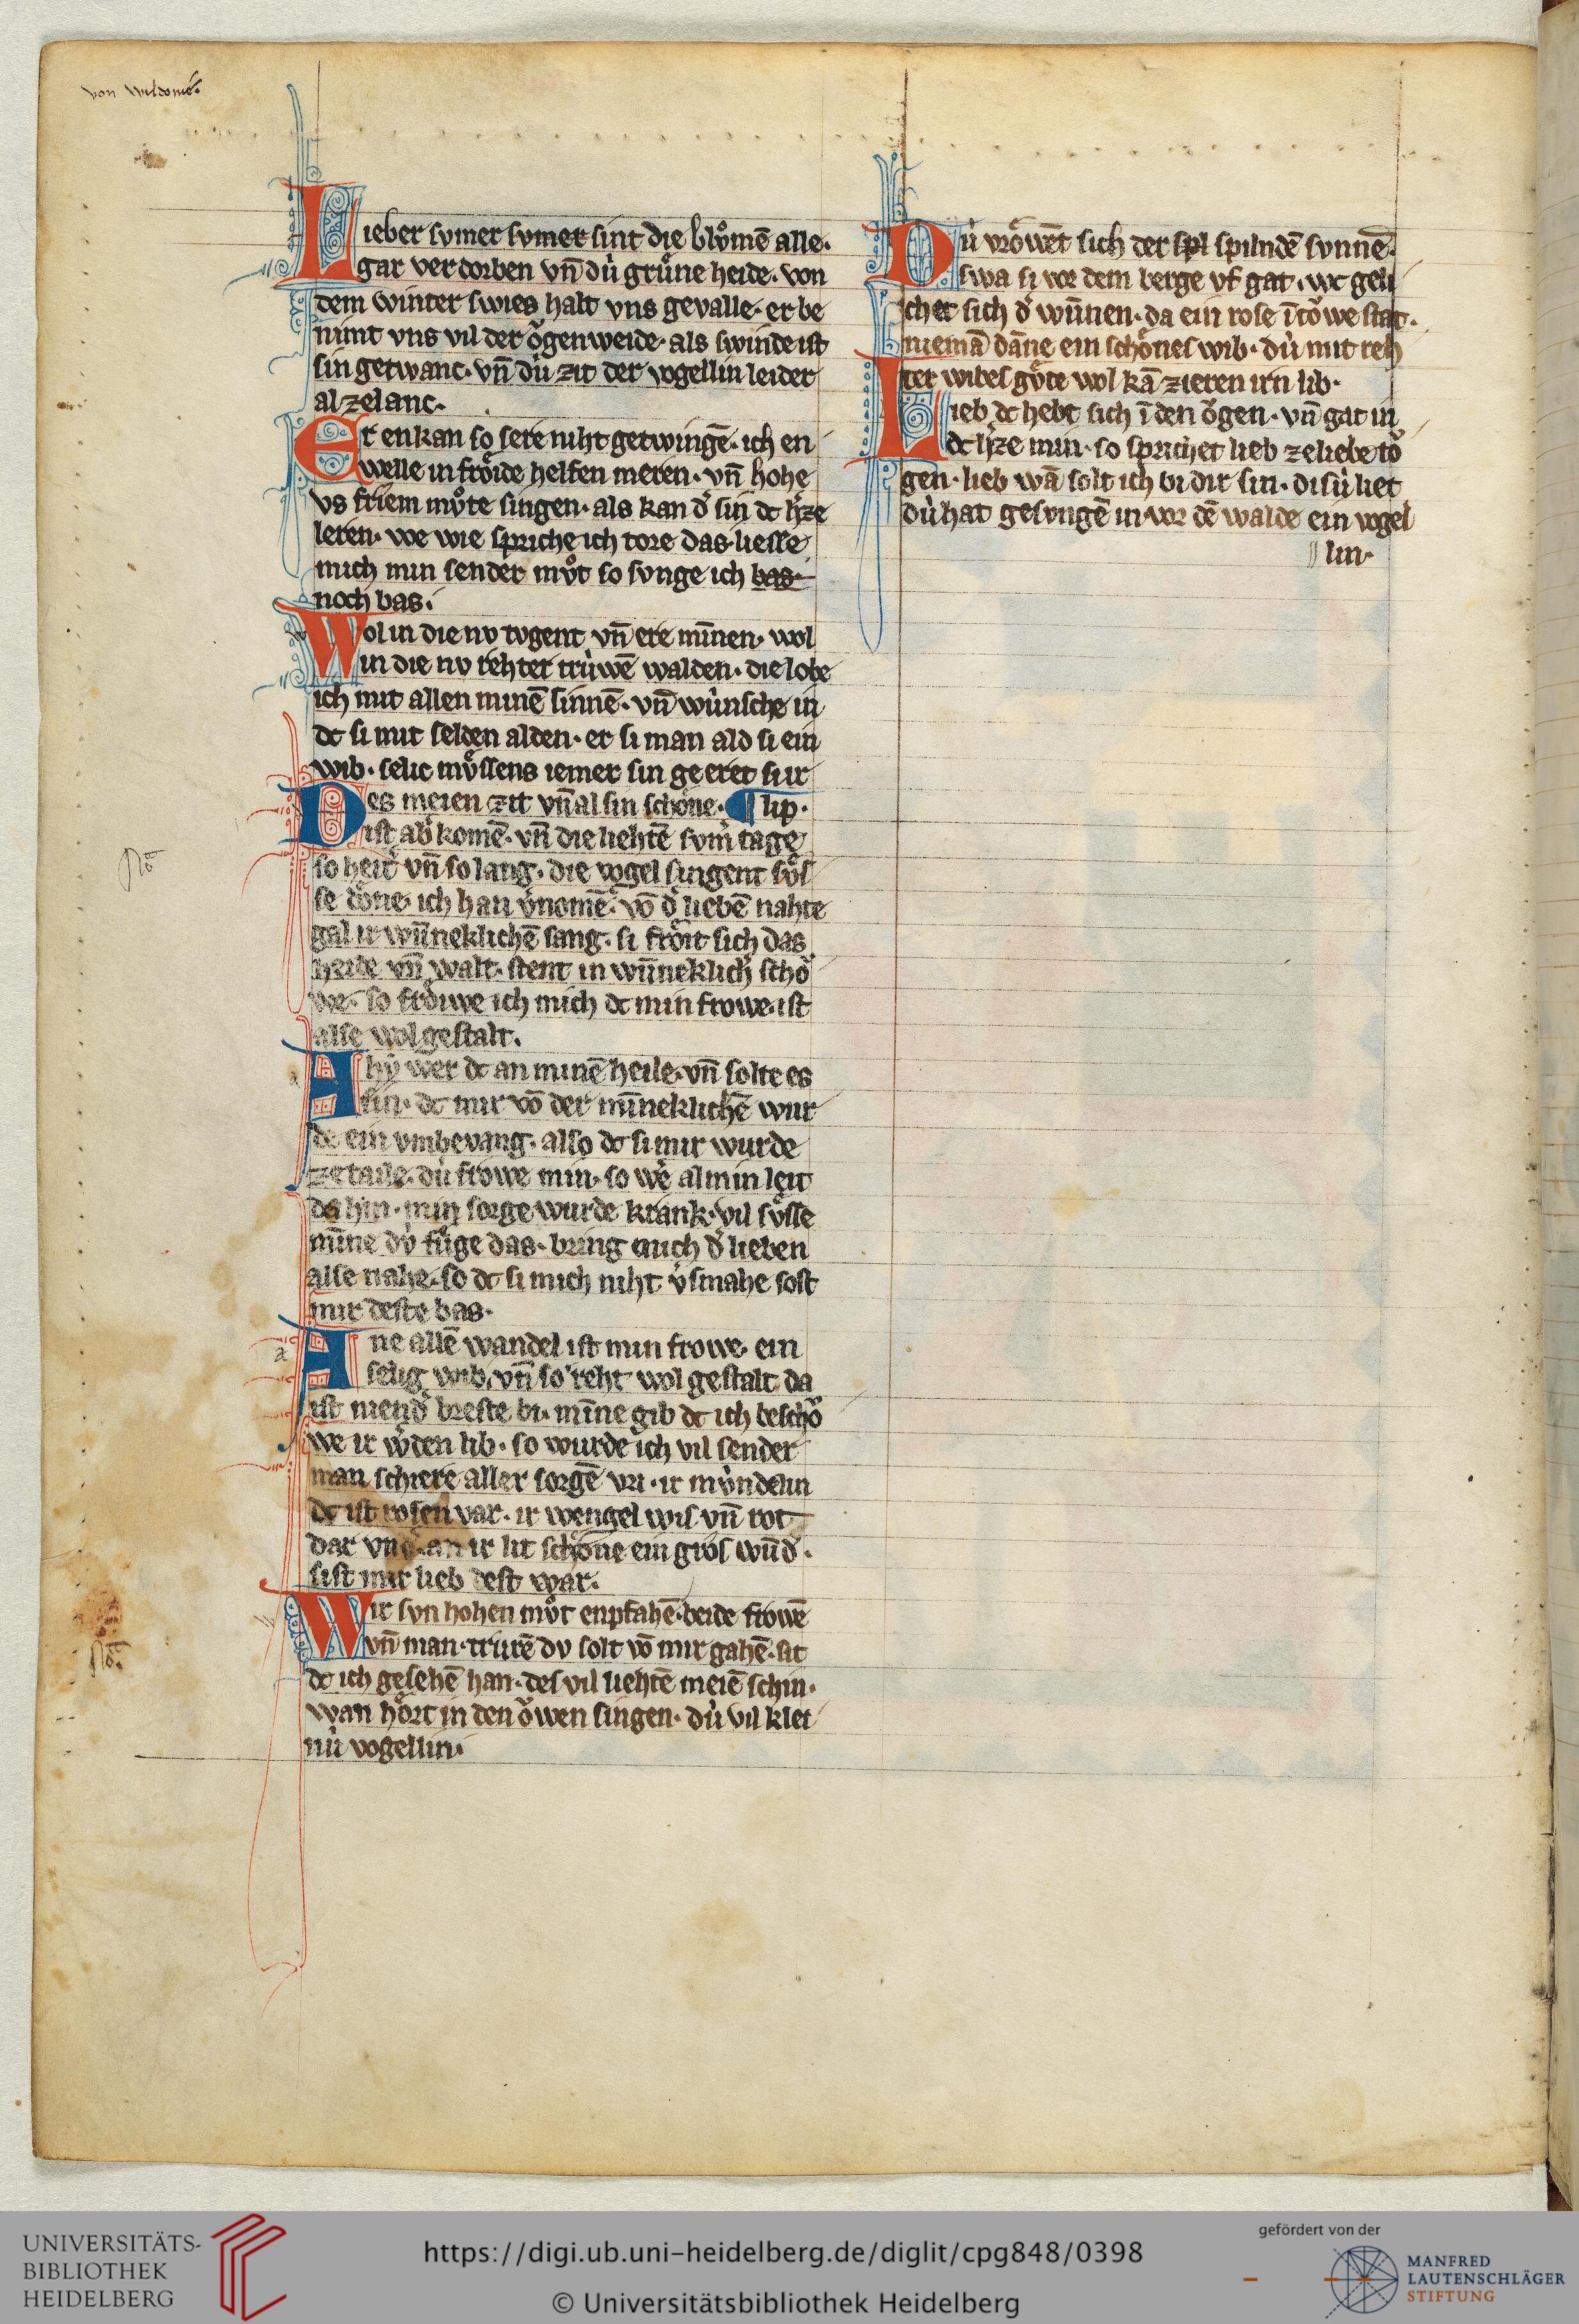 von wildonie.
Lieber svmer svmer sint die blvͦmē alle.
gar verdorben vn̄ dv̀ grvͤne heide. von
dem winter swies halt vns gevalle. er be
nimt vns vil der oͮgenweide. als swinde ist
sin getwanc. vn̄ dv̀ zit der vogellin leider
al zelanc.
Er enkan so sere niht getwingē. ich en
welle in froͤide helfen meren. vn̄ hohe
vs friem mvͦte singen. als kan d͛ sin dc h͛ze
leren. we wie spriche ich tore das. liesse
mich min sender mvͦt so svnge ich bas
noch bas.
Wol in die nv tvgent vn̄ ere miñen. wol
in die nv rehter trv̀wē walden. die lobe
ich mit allen minē sinnē. vn̄ wv̀nsche in
dc si mit selden alden. er si man ald si ein
wib. selic mvͤssens iemer sin geeret sir
lip.
Des meien zit vn̄ al sin schoͤne.
ist ab͛ komē. vn̄ die liehtē svm͛ tage
so heit͛ vn̄ so lang. die vogel singent svͤs
se doͤne. ich han v͛nomē. vō d͛ liebē nahte
gal ir wūneklichē sang. si froͤit sich das
heide vn̄ walt. stent in wūneklich͛ schoͤ
we. so froͤiwe ich mich dc min frowe ist
alse wol gestalt.
Ahy wer dc an minē heile. vn̄ solte es
sin. dc mir vō der miñeklichē wur
de ein vmbevang. also dc si mir wurde
ze taile. dv̀ frowe min. so weͤ al min leit
da hin. min sorge wurde krank. vil svͤsse
miñe dv fuͤge das. bring mich d͛ lieben
alse nahe. so dc si mich niht v͛smahe sost
mir deste bas.
a
Ane allē wandel ist min frowe. ein
selig wib. vn̄ so reht wol gestalt da
ist niend͛ breste bi. miñe gib dc ich beschoͮ
we ir w͛den lib. so wurde ich vil sender
man schiere aller sorgē vri. ir mv̀ndelin
dc ist rosen var. ir wengel wis vn̄ rot
dar vnd͛. an ir lit schoͤne ein gros wūd͛.
sist mir lieb dest war.
Wir svn hohen mvͦt enpfahē. beide frowē
vn̄ man. trurē dv solt vō mir gahē. sit
dc ich gesehē han. des vil liehtē meiē schin.
wan hoͤrt in den oͮwen singen. dv̀ vil klei
nv̀ vogellin.
Dv̀ vroͤwēt sich der spl spilndē svnnē.
swa si vor dem berge vf gat. wc geli
chet sich d͛ wūnen. da ein rose ī toͮwe stat.
niemā dāne ein schoͤnes wib. dv̀ mit reh
ter wibes gvͤte wol kā zieren irn lib.
Lieb dc hebt sich ī den oͮgen. vn̄ gat in
dc h͛ze min. so sprichet lieb ze liebe toͮ
gen. lieb wā solt ich bi dir sin. disv̀ liet
dv̀ hat gesvngē in. vor dē walde ein vogel
lin.
UNIVERSITÄTS-
BIBLIOTHEK
HEIDELBERG
https://digi.ub.uni-heidelberg.de/diglit/cpg848/0398
© Universitätsbibliothek Heidelberg
gefördert von der
MANFRED
LAUTENSCHLÄGER
STIFTUNG